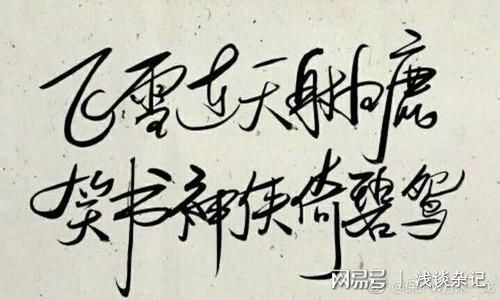 飞雪连天射白鹿
笑书神侠倚碧鸳
网易号 | 浅谈杂记